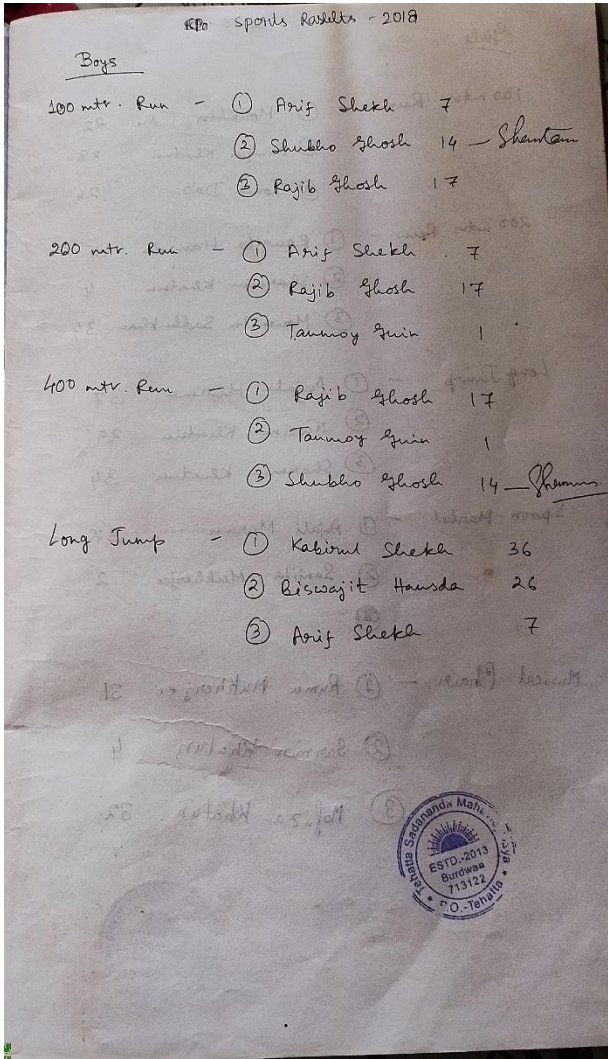 Sports Rasults - 2018
Boys
100 mtr. Run - ① Arif Shekh 7
② Shubho Ghosh 14 -
③ Rajib Ghosh 17
200 mtr. Run - ① Arif Shekh 7
② Rajib Ghosh 17
③ Tanmoy Guin 1
400 mtr. Run - ① Rajib Ghosh 17
② Tanmoy Guin 1
③ Shubho Ghosh 14 -
Long Jump - ① Kabirul Shekh 36
② Biswajit Hansda 26
③ Arif Shekh 7
Tehatta Sadananda
ESTD.-2013
Burdwan
713122
P.O.-Tehatta